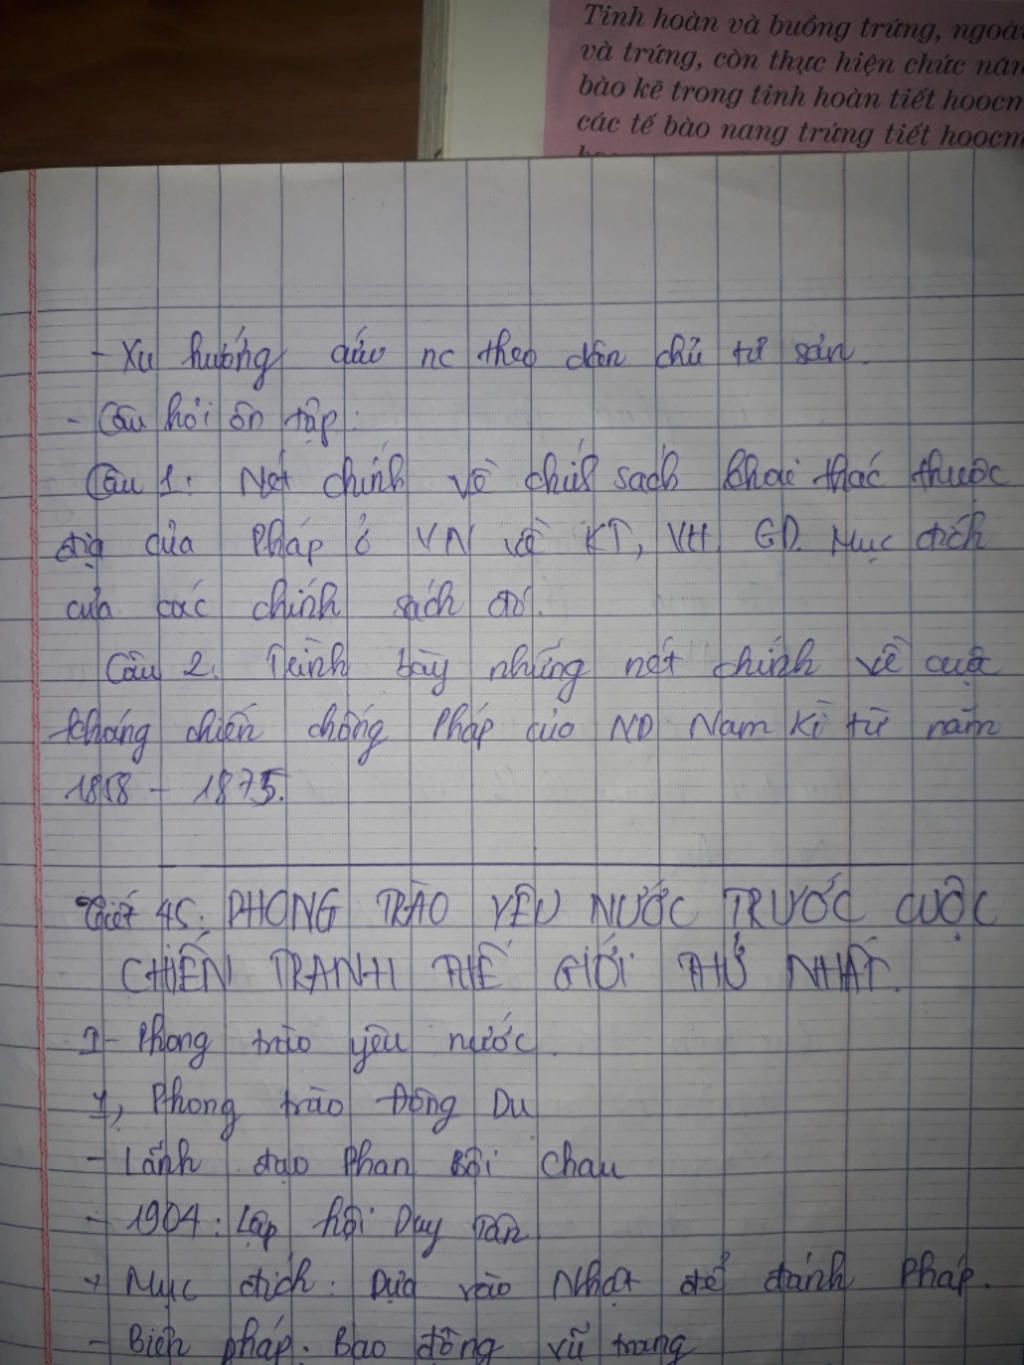 Tinh hoàn và buồng trứng, ngoài
và trứng, còn thực hiện chức năn
bào kẽ trong tinh hoàn tiết hoocm
các tế bào nang trứng tiết hoocm
- Xu hướng cứu nc theo dân chủ tư sản.
- Câu hỏi ôn tập:
Câu 1: Nét chính về chính sách khai thác thuộc
địa của Pháp ở VN về KT, VH, GD. Mục đích
của các chính sách đó.
Câu 2. Trình bày những nét chính về cuộc
kháng chiến chống Pháp của ND Nam Kì từ năm
1858 - 1875.
Tiết 45: PHONG TRÀO YÊU NƯỚC TRƯỚC CUỘC
CHIẾN TRANH THẾ GIỚI THỨ NHẤT.
I- Phong trào yêu nước.
1, Phong trào Đông Du
- Lãnh đạo Phan Bội Chau
- 1904: Lập hội Duy Tân
+ Mục đích: Dựa vào Nhật để đánh Pháp.
- Biện pháp: Bạo động vũ trang